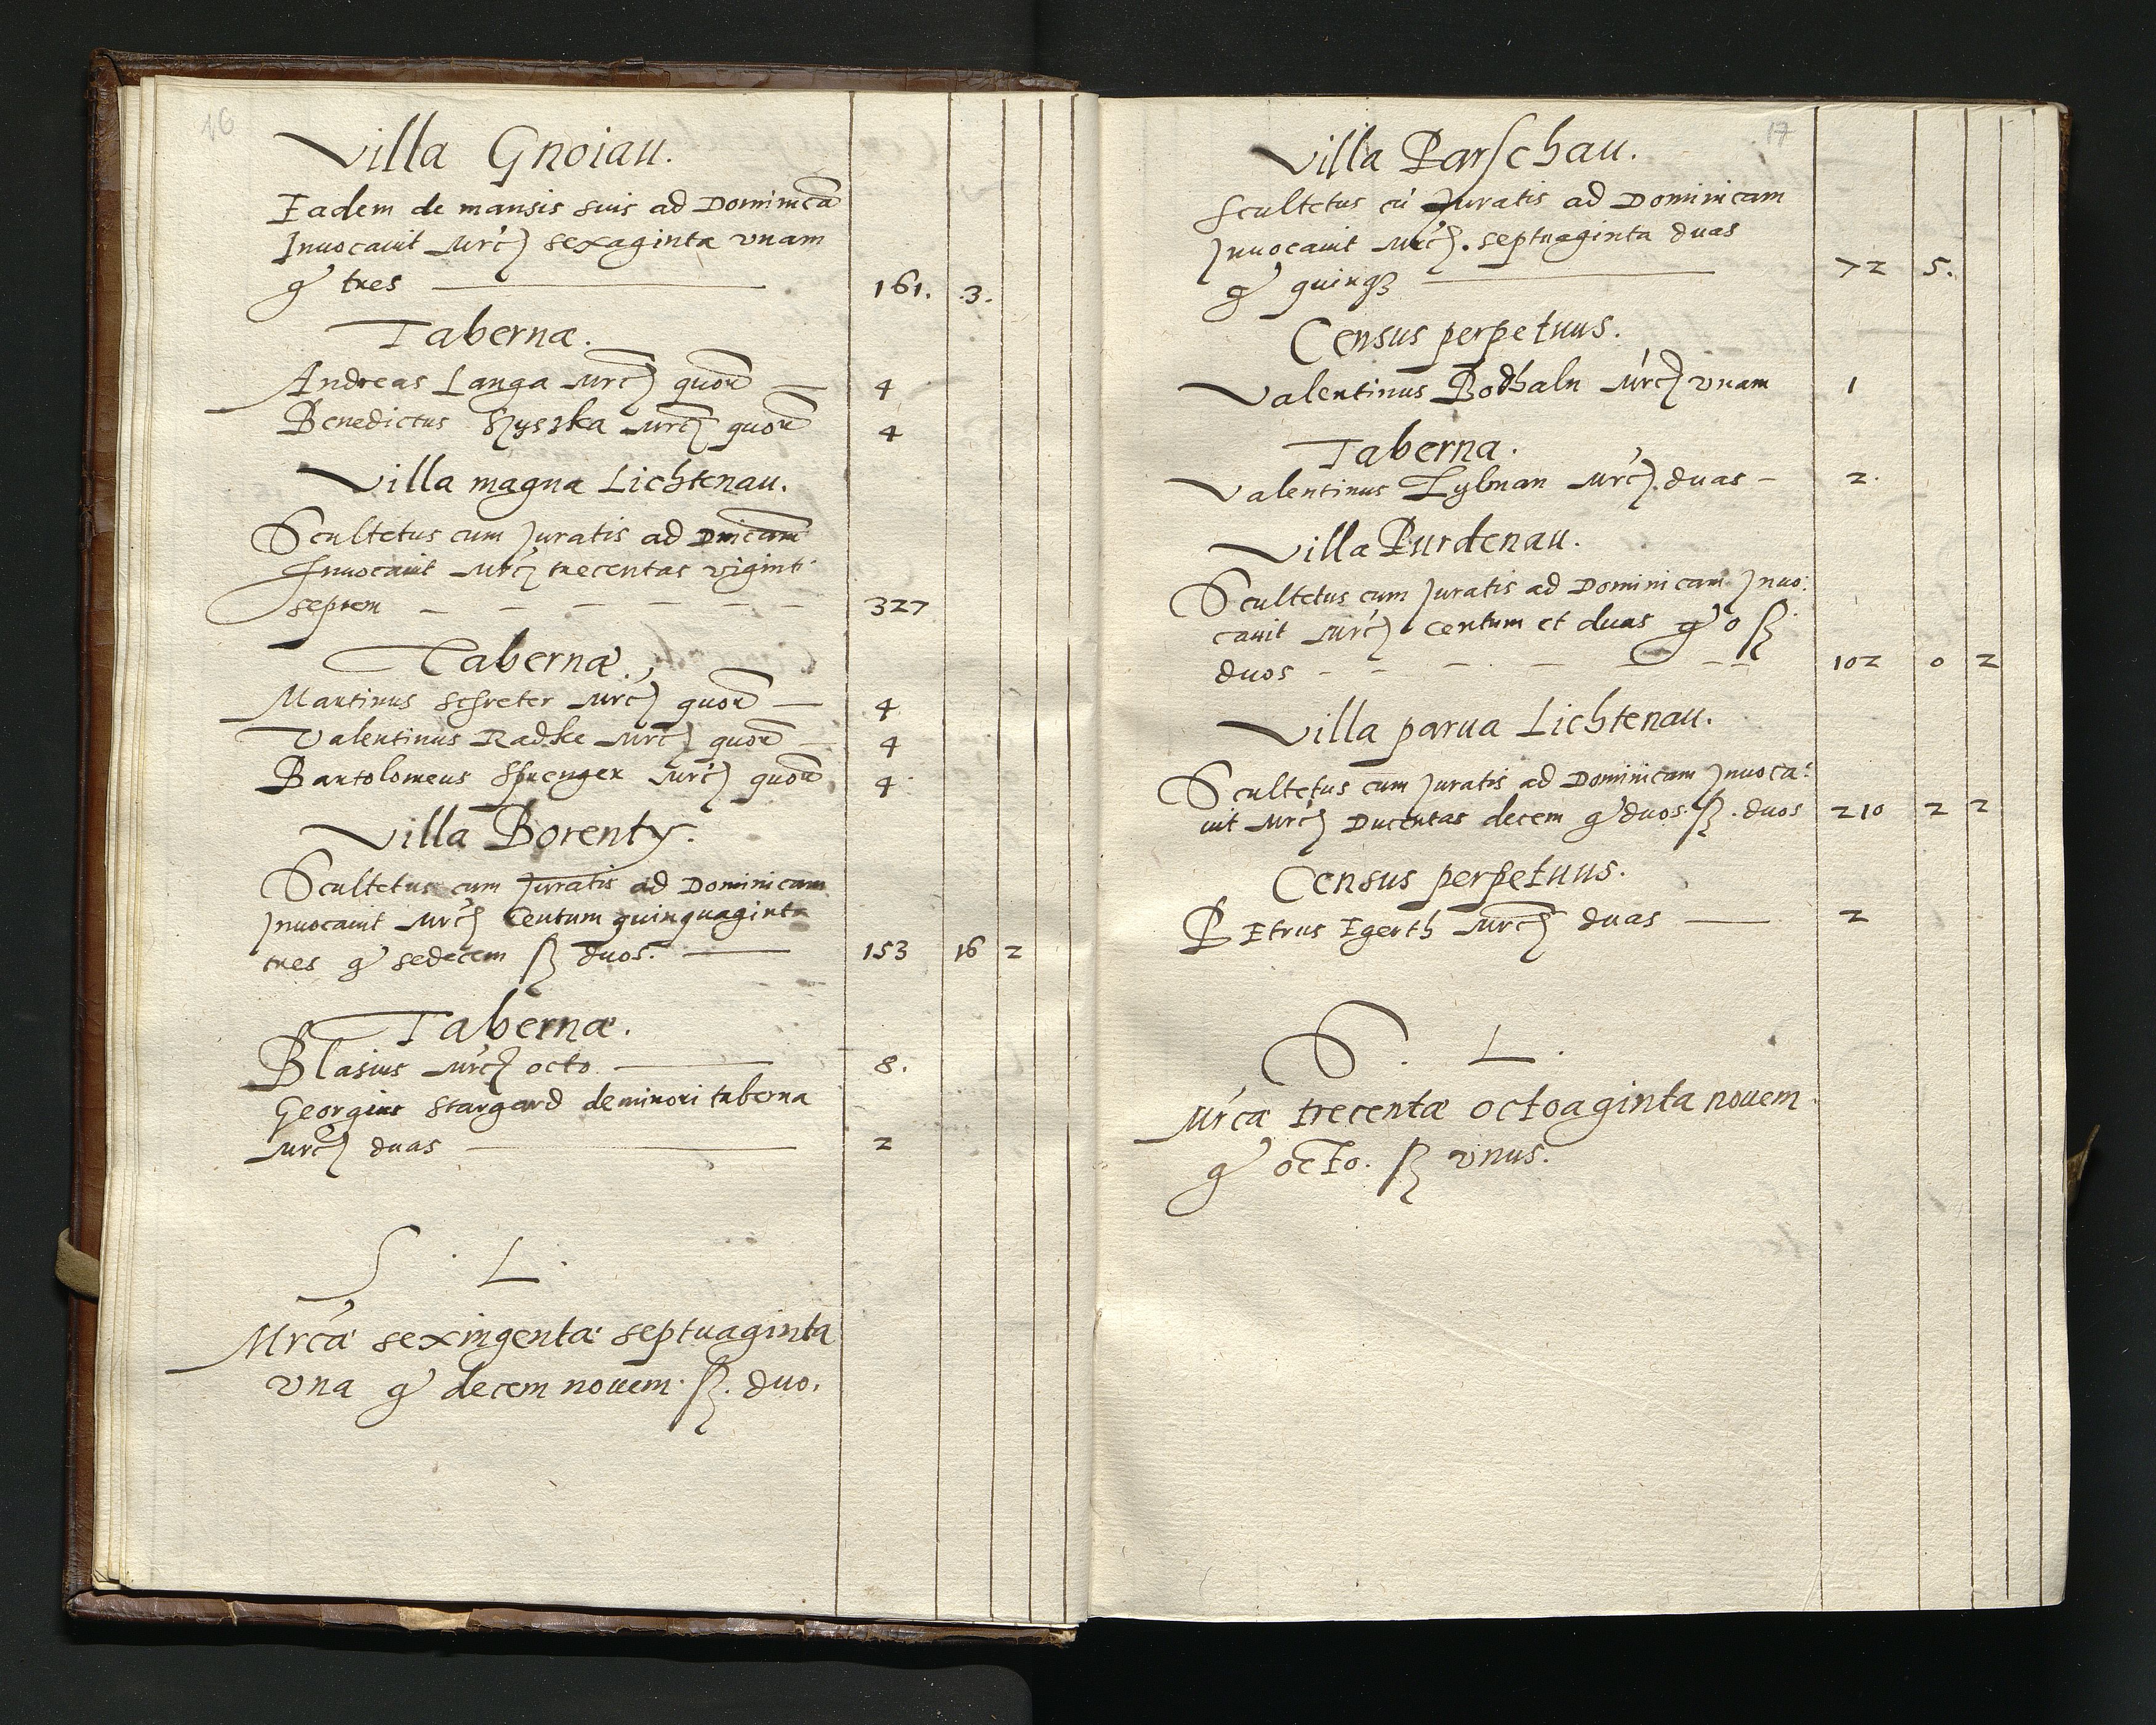 16
Villa Gnoiau.
Eadem de mansis suis ad Dominicā
Invocavit mrc sexaginta vnam
g tres 161. 3.
Tabernæ.
Andreas Langa mrc quor 4
Benedictus mrc quor 4
Villa magna Lichtenau.
Scultetus cum Juratis ad Dnicam
Invocavit mrc trecentas viginti
septem 327
Tabernæ.
Martinus Schreter mrc quor 4
Valentinus Radke mrc quor 4
Bartolomeus Sprenger mrc quor 4
Villa Borenty.
Scultetus cum Juratis ad Dominicam
Invocavit mrc Centum quinquaginta
tres g sedecem ß duos. 153 16 2
Tabernæ.
Blasius mrc octo 8.
Georgius Stargard de minori taberna
mrc duas 2
S. L.
Mrcæ sexingentæ septuaginta
vna g decem novem. ß. duo.
17
Villa Parschau.
Scultetus cū Juratis ad Dominicam
Invocavit mrc. septuaginta duas
g quinqȝ 72 5.
Census perpetuus.
Valentinus Bodhaln mrc vnam 1
Taberna.
Valentinus Lybnan mrc. duas 2.
Villa Purdenau.
Scultetus cum Juratis ad Dominicam Invo:
cavit mrc Centum et duas g o ß
duos 102 0 2
Villa parva Lichtenau.
Scultetus cum Juratis ad Dominicam Invoca:
vit mrc Ducentas decem g duos. ß. duos 210 2 2
Census perpetuus.
Petrus Egerth mrc duas 2
S. L.
Mrcæ trecentæ octoaginta novem
g octo. ß vnus.